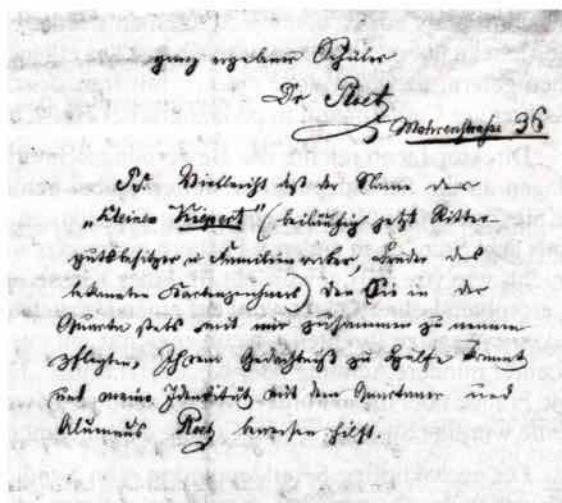 ganz ergebener Schüler
Dr. Roetz
Mohrenstraße 36
P.S. Vielleicht daß der Name des
„kleinen Kiepert" (beiläufig jetzt Ritter-
gutsbesitzer u Familienvater, Bruder des
bekannten Kartenzeichners) den Sie in der
Quarta stets mit mir zusammen zu nennen
pflegten, Ihrem Gedächtniß zu Hülfe kommt
und meine Identität mit dem Quartaner und
Alumnus beweisen hilft.